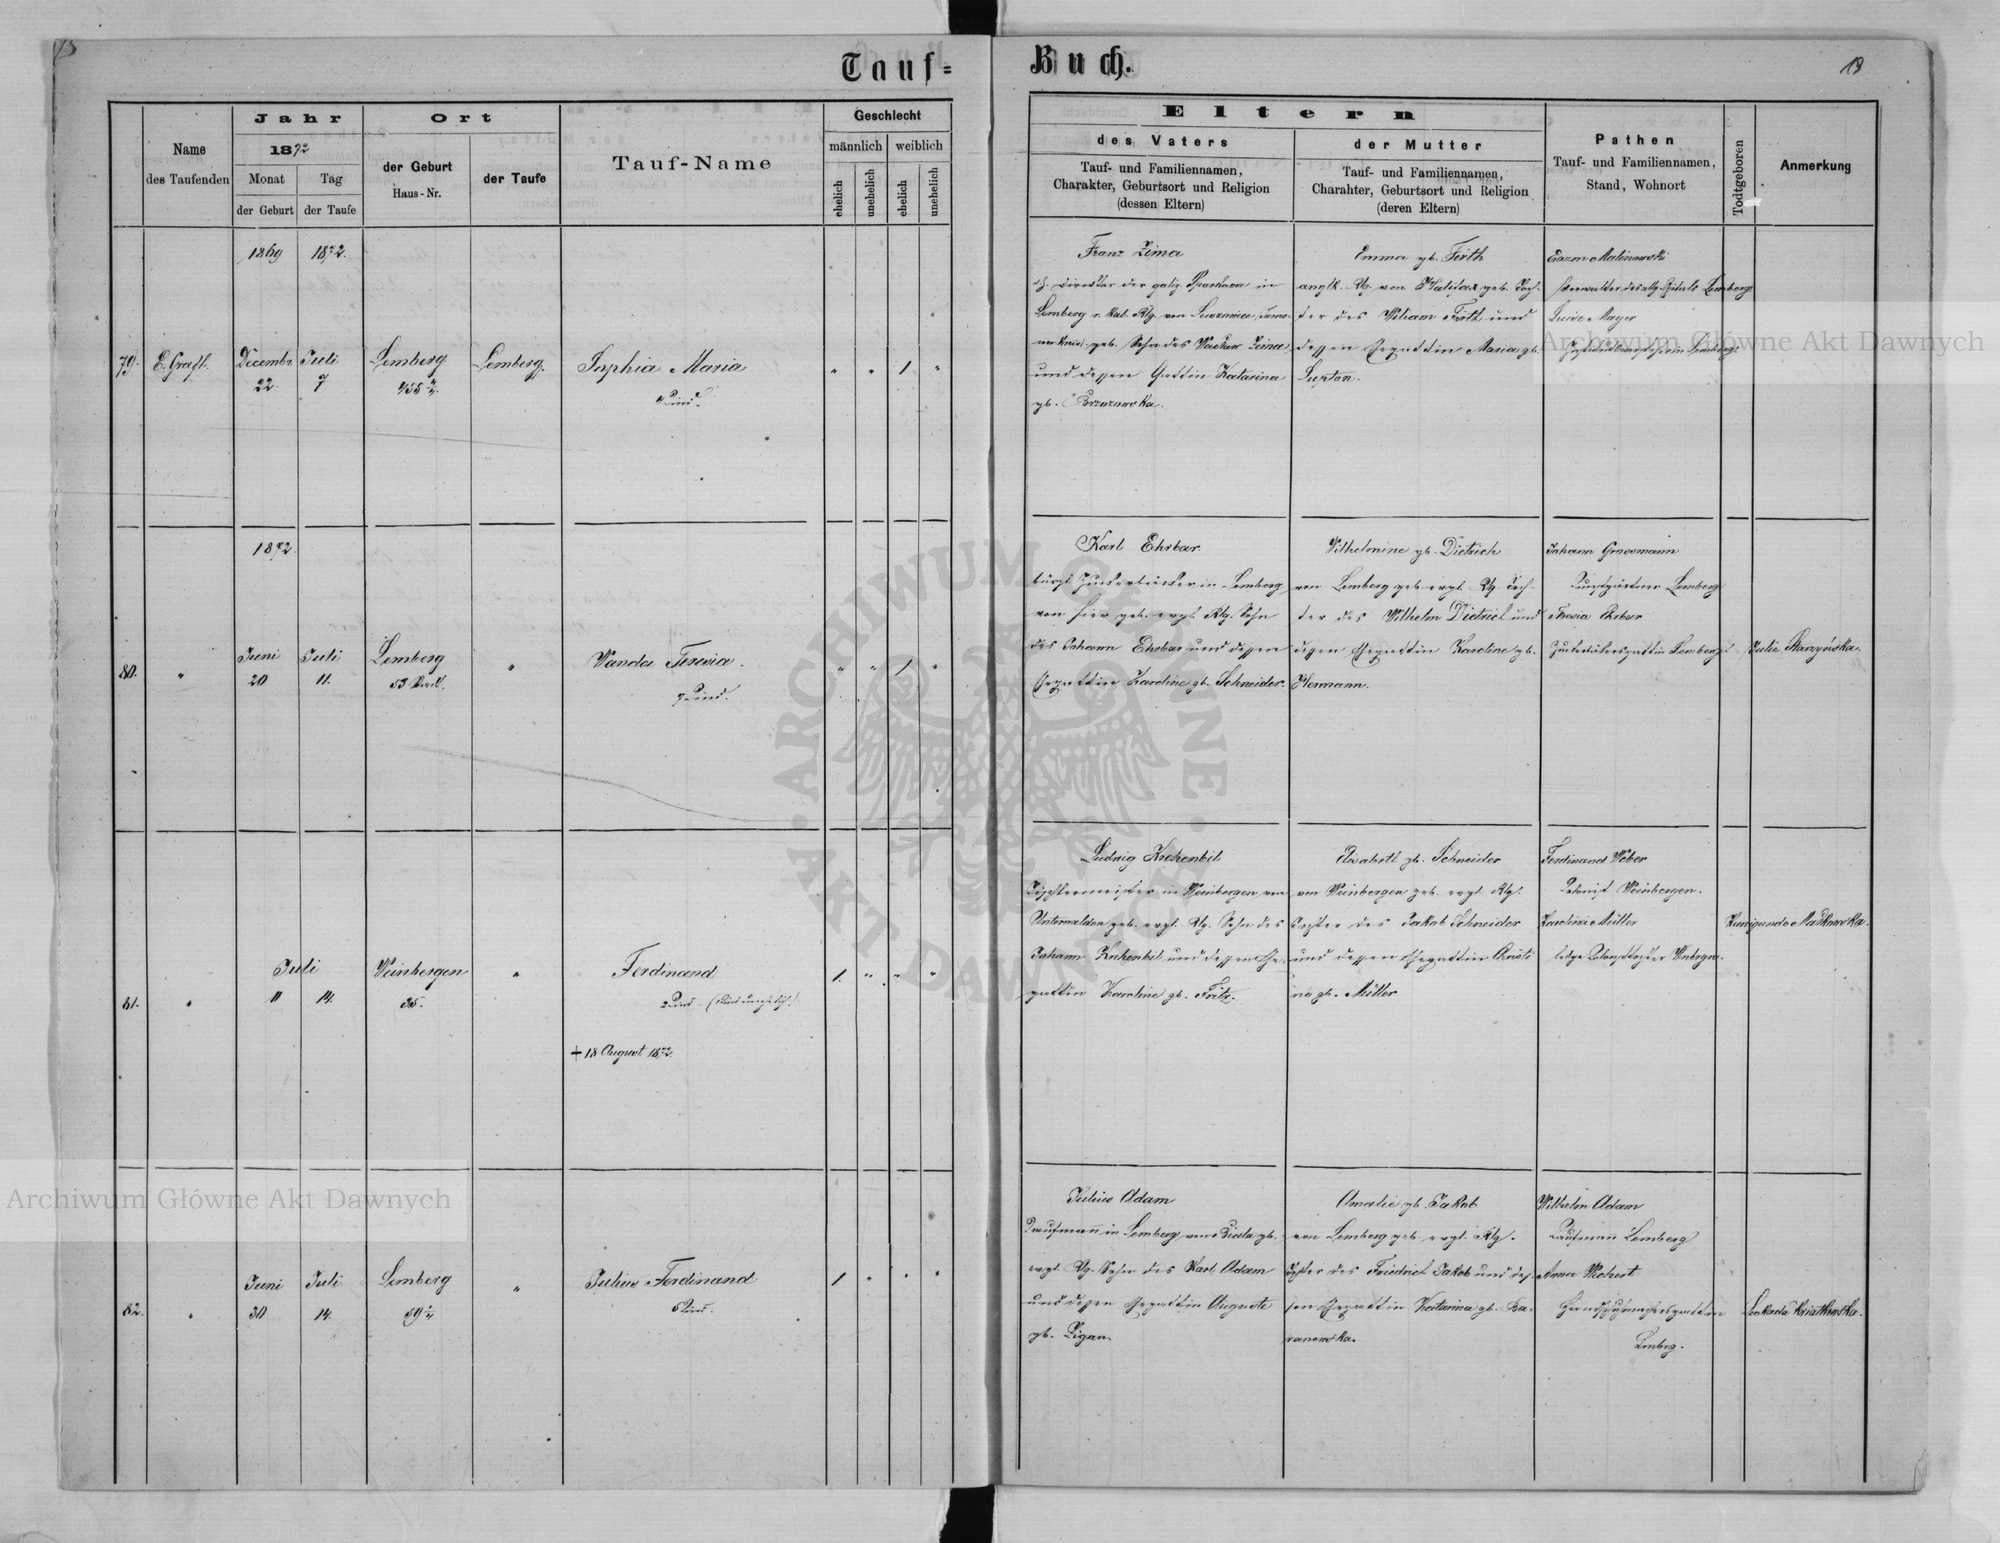 Tauf=
Buch.
19
Name
des Taufenden
Jahr
1872
Monat
der Geburt
Tag
der Taufe
Ort
der Geburt
Haus-Nr.
der Taufe
Tauf-Name
Geschlecht
männlich
weiblich
ehelich
unehelich
ehelich
unehelich
Eltern
des Vaters
Tauf- und Familiennamen,
Charakter, Geburtsort und Religion
(dessen Eltern)
der Mutter
Tauf- und Familiennamen,
Charahter, Geburtsort und Religion
(deren Eltern)
Pathen
Tauf- und Familiennamen,
Stand, Wohnort
Todtgeboren
Anmerkung
1869
1872.
79.
E. Grafl.
Decembr
22.
Juli
7
Lemberg
Lemberg.
Sophia Maria
Franz Zima
Direktor der galiz. Sparkasa in
Lemberg r. kat. Rlg. von
geb. Sohn des Zima
und dessen Gattin Katarina
gb.
Emma gb. Firth
anglk. Rlg. von Halifax geb. Toch-
ter des Wiliam Firth und
dessen Ehegattin Maria gb.
Lupton.
Malinowski
Verwalter des allg. Spitals Lemberg
Luise Mayer
Lemberg.
1872.
80.
"
Juni
20
Juli
11.
Lemberg
53 Stadt.
"
Wanda Teresia.
Kind.
Karl Ehrbar.
bürgl. Zuckerbäcker in Lemberg
von hier geb. evgl. Rlg. Sohn
des Johann Ehrbar und dessen
Ehegattin Karoline gb. Schneider.
Wilhelmine gb. Dietrich
von Lemberg geb. evgl. Rlg. Toch-
ter des Wilhelm Dietrich und
dessen Ehegattin Karoline gb.
Hermann.
Johann Grossmann
Kunstgärtner Lemberg
Thresia Ehrbar
Zuckerbäckersgattin Lemberg.
Julie Starzyńska.
81.
"
Juli
11
14.
Weinbergen
35.
"
Ferdinand
2 Kind
+ 18 August 1872.
Ludwig Krehenbil
Tischlermeister in Weinbergen von
Unterwalden geb. evgl. Rlg. Sohn des
Johann Krehenbil und dessen Ehe-
gattin Karoline gb. Fritz.
Elisabeth gb. Schneider
von Weinbergen geb. evgl. Rlg.
Tochter des Jakob Schneider
und dessen Ehegattin Christi
ine gb. Müller
Ferdinand Weber
Kolonist Weinbergen.
Karoline Müller
ledige Kolonistochter Wnbrgn.
Kunigunde Maćkowska.
82.
"
Juni
30
Juli
14.
Lemberg
"
Julius Ferdinand
5 Kind.
Julius Adam
Kaufmann in Lemberg von Biala gb.
evgl. Rlg. Sohn des Karl Adam
und dessen Ehegattin Auguste
gb. Zigan.
Amalie gb. Jakob
von Lemberg geb. evgl. Rlg.
Tochter des Friedrich Jakob und des-
sen Ehegattin Katarina gb. Ba-
ranowska.
Wilhelm Adam
Kaufmann Lemberg
Anna Wichert
Handschuhmachersgattin
Lmbrg.
Leokadia Kwiatkowska.
Archiwum Główne Akt Dawnych
Archiwum Główne Akt Dawnych
ARCHIWUM GŁÓWNE AKT DAWNYCH